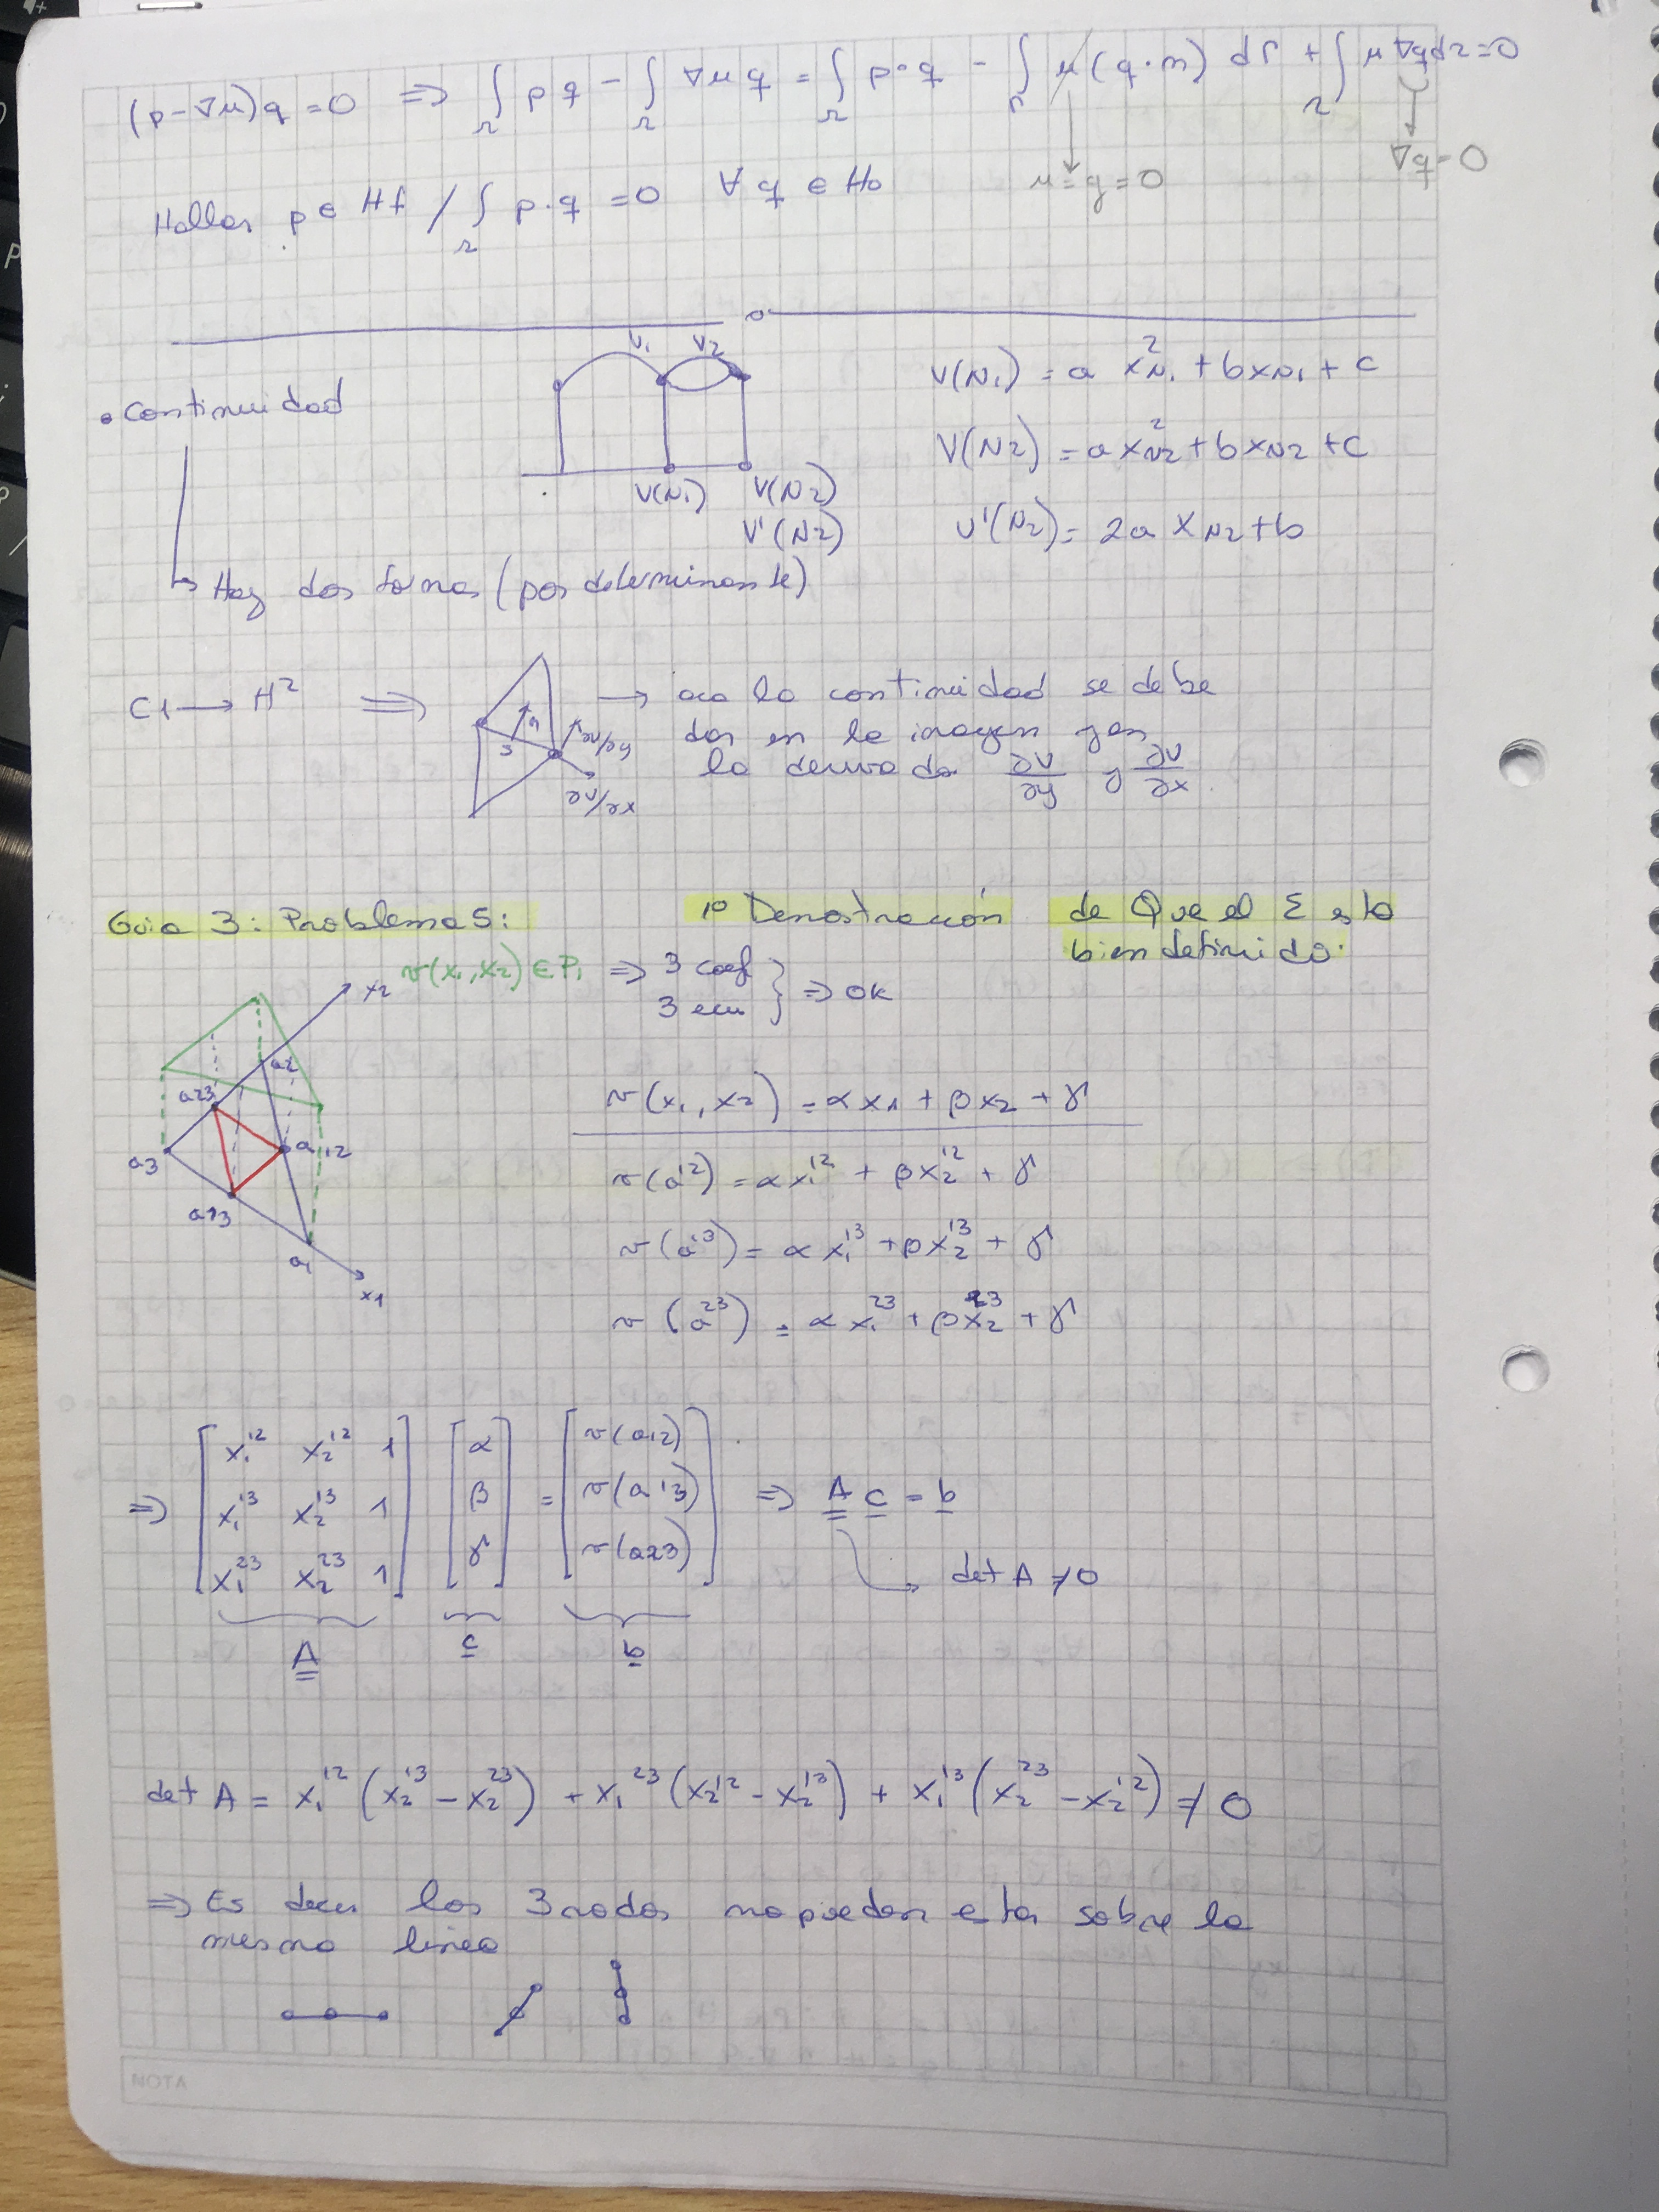 (p-∇μ)q = 0 ⇒ ∫Ω p q - ∫Ω ∇μ q = ∫Ω p·q - ∫Γ μ(q·n) dΓ + ∫Ω μ ∇q dΩ = 0
μ=g=0
∇q=0
Hallar p ∈ Hf / ∫Ω p·q = 0 ∀ q ∈ Ho
V1 V2
V(N1) = a x²N1 + b xN1 + c
• Continuidad
V(N2) = a x²N2 + b xN2 + c
V(N1) V(N2)
V'(N2)
V'(N2) = 2a xN2 + b
↳ Hay dos formas (por determinante)
C1 → H² ⇒
∂V/∂y
∂V/∂x
→ aca la continuidad se debe
dar en la imagen y en
la derivada ∂V/∂y y ∂V/∂x
Guia 3: Problema 5:
1º Demostración de Que el Σ esta
bien definido.
v(x1,x2) ∈ P1 ⇒ 3 coef
3 ecu } ⇒ OK
x2
a2
a23
a12
a3
a13
a1
x1
v(x1, x2) = αx1 + βx2 + γ
v(a¹²) = αx1¹² + βx2¹² + γ
v(a¹³) = αx1¹³ + βx2¹³ + γ
v(a²³) = αx1²³ + βx2²³ + γ
⇒ [x1¹² x2¹² 1] [α] = [v(a12)]
[x1¹³ x2¹³ 1] [β] [v(a13)] ⇒ A c = b
[x1²³ x2²³ 1] [γ] [v(a23)]
det A ≠ 0
A c b
det A = x1¹²(x2¹³ - x2²³) + x1²³(x2¹² - x2¹³) + x1¹³(x2²³ - x2¹²) ≠ 0
⇒ Es decir los 3 nodos no pueden estar sobre la
misma linea
NOTA